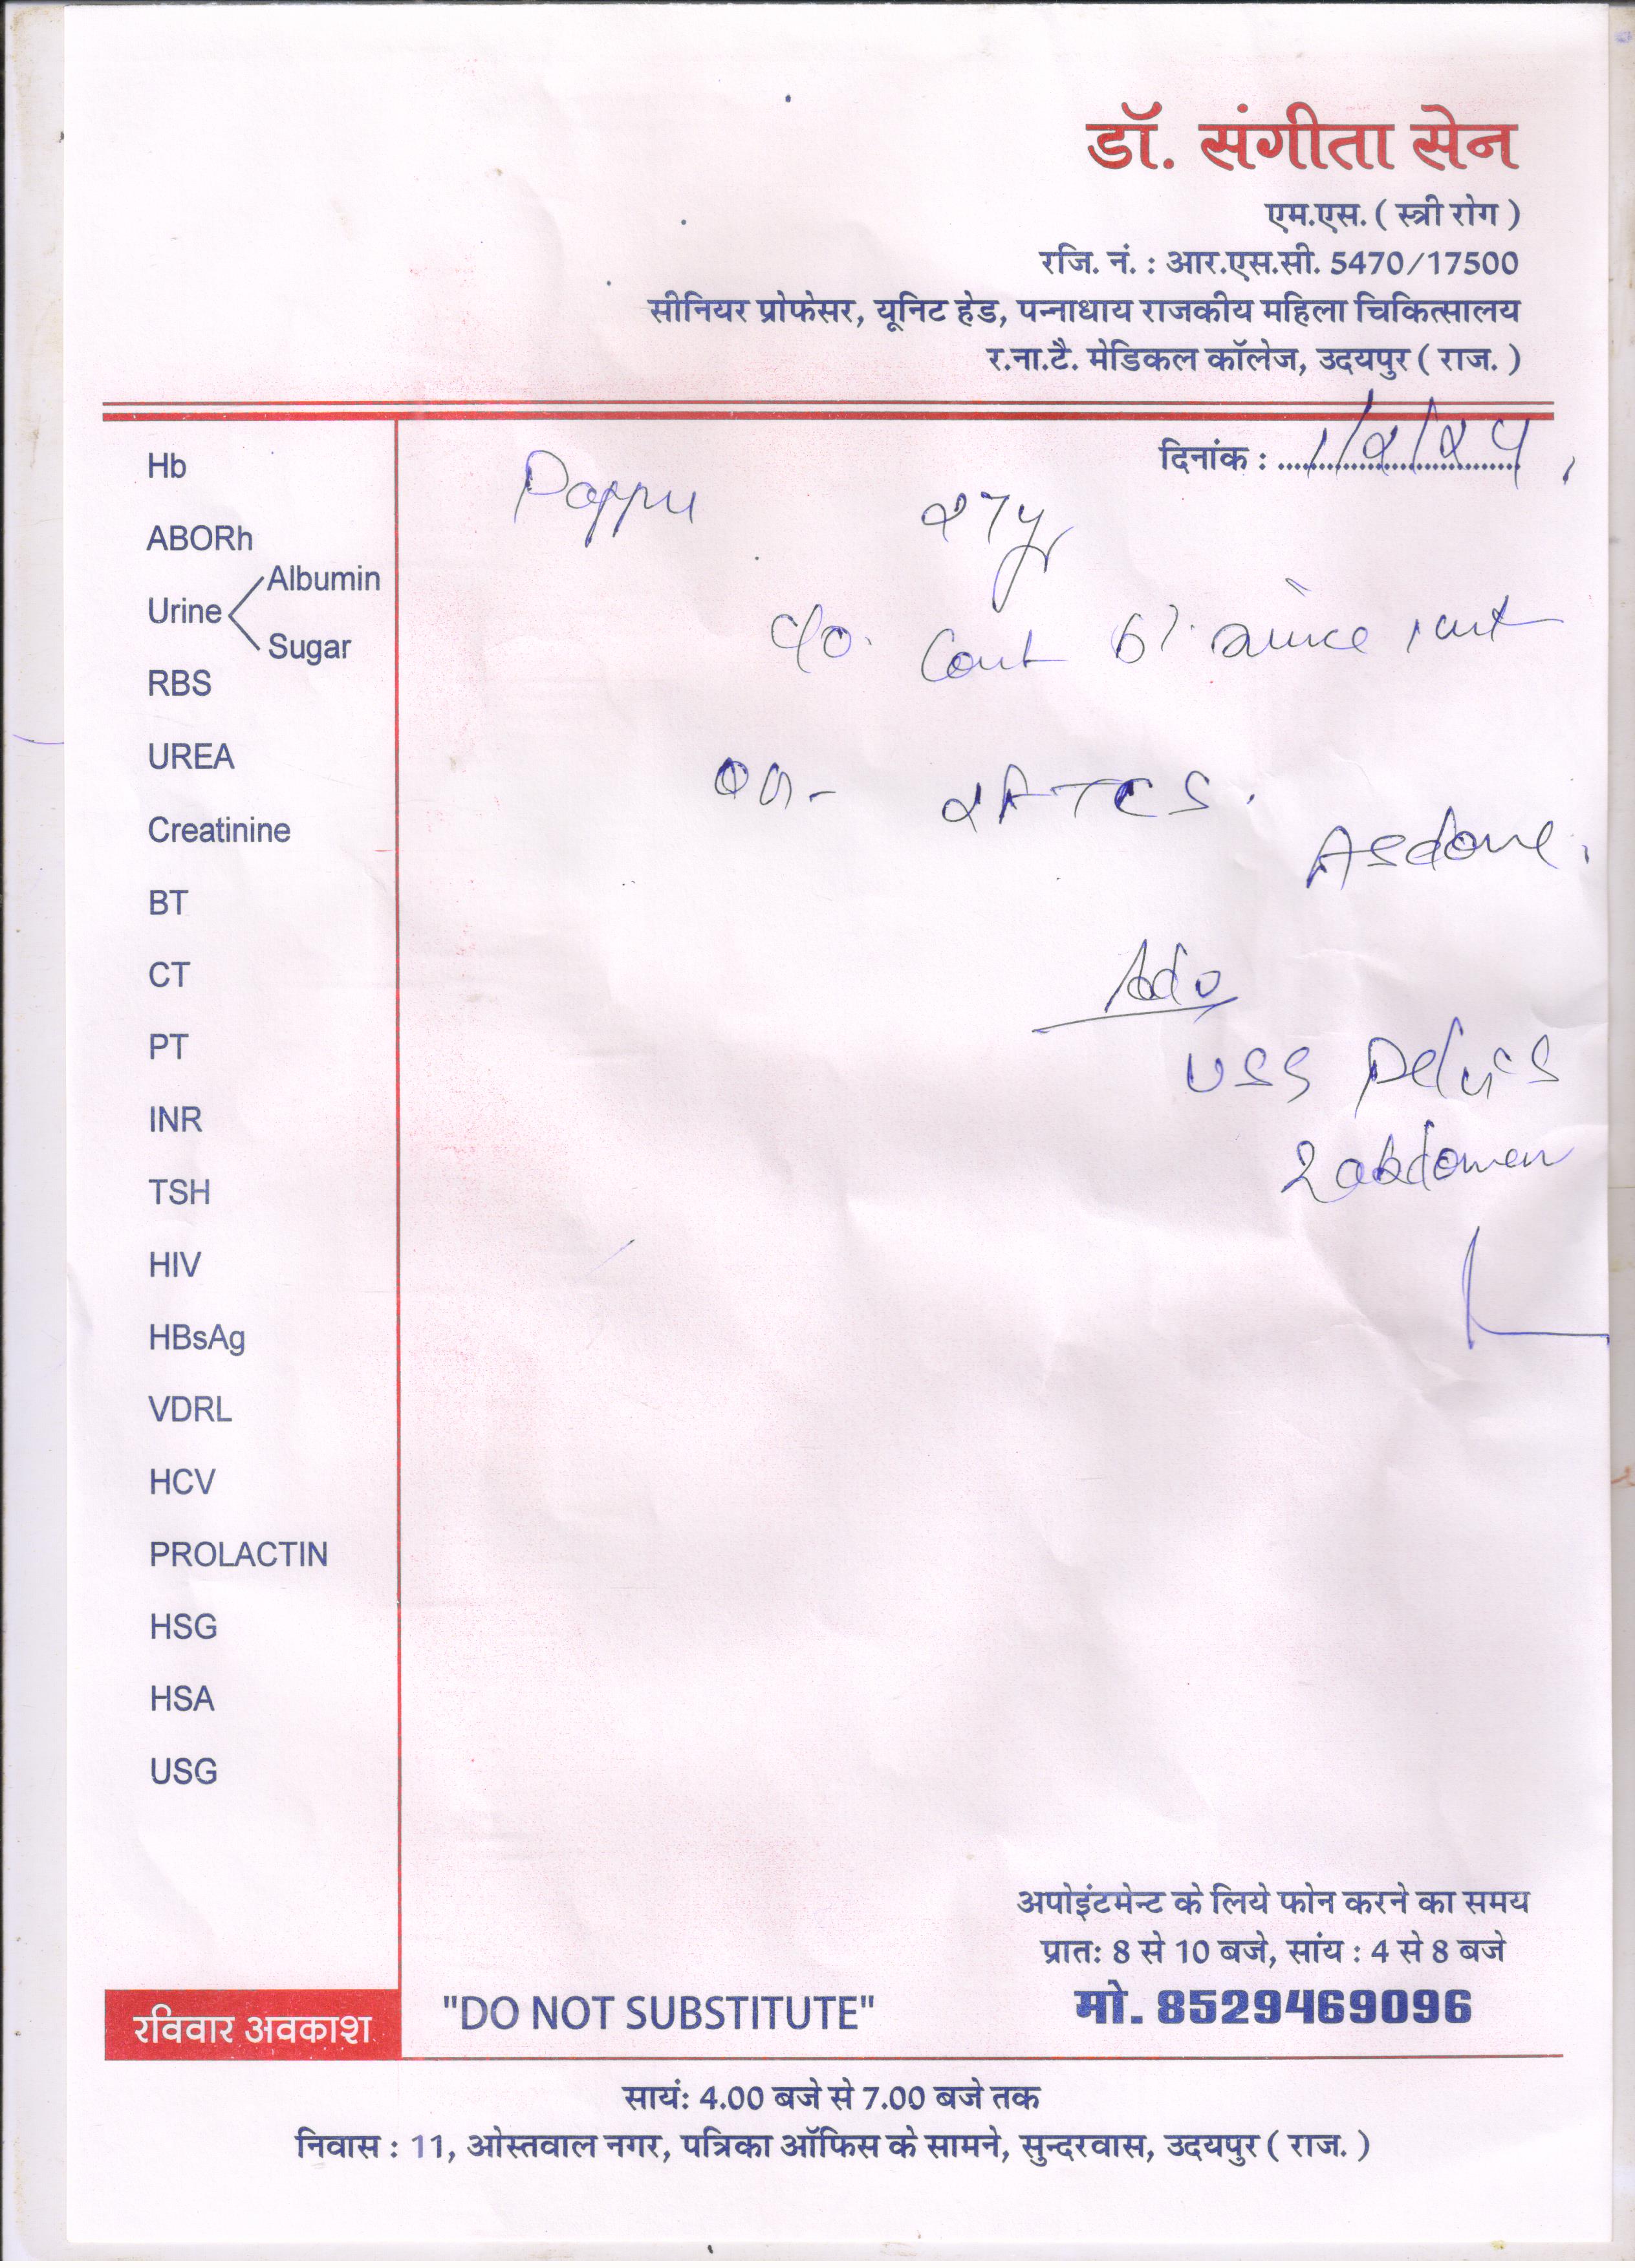 डॉ. संगीता सेन
एम.एस. ( स्त्री रोग )
रजि. नं. : आर.एस.सी. 5470/17500
सीनियर प्रोफेसर, यूनिट हेड, पन्नाधाय राजकीय महिला चिकित्सालय
र.ना.टै. मेडिकल कॉलेज, उदयपुर ( राज. )
दिनांक :
Pappu 27y
c/o. Cont since
Adv
USG Pelvis
& abdomen
Hb
ABORh
Albumin
Urine
Sugar
RBS
UREA
Creatinine
BT
CT
PT
INR
TSH
HIV
HBsAg
VDRL
HCV
PROLACTIN
HSG
HSA
USG
अपोइंटमेन्ट के लिये फोन करने का समय
प्रातः 8 से 10 बजे, सांय : 4 से 8 बजे
मो. 8529469096
रविवार अवकाश
"DO NOT SUBSTITUTE"
सायं: 4.00 बजे से 7.00 बजे तक
निवास : 11, ओस्तवाल नगर, पत्रिका ऑफिस के सामने, सुन्दरवास, उदयपुर ( राज. )